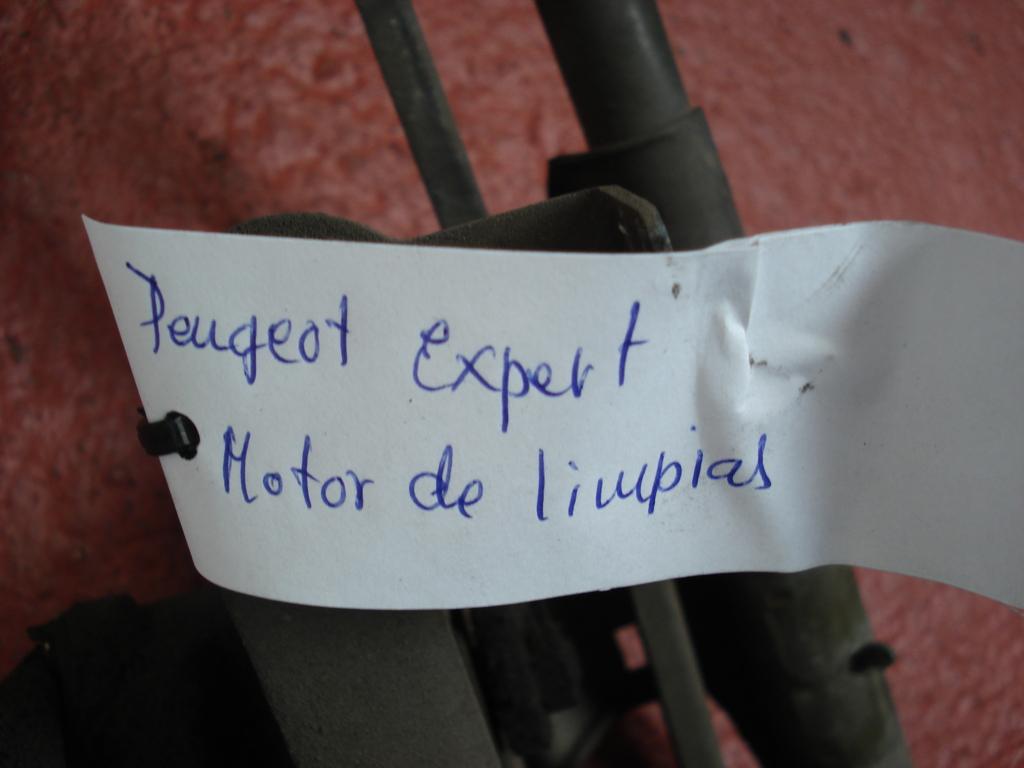 Peugeot Expert
Motor de limpias